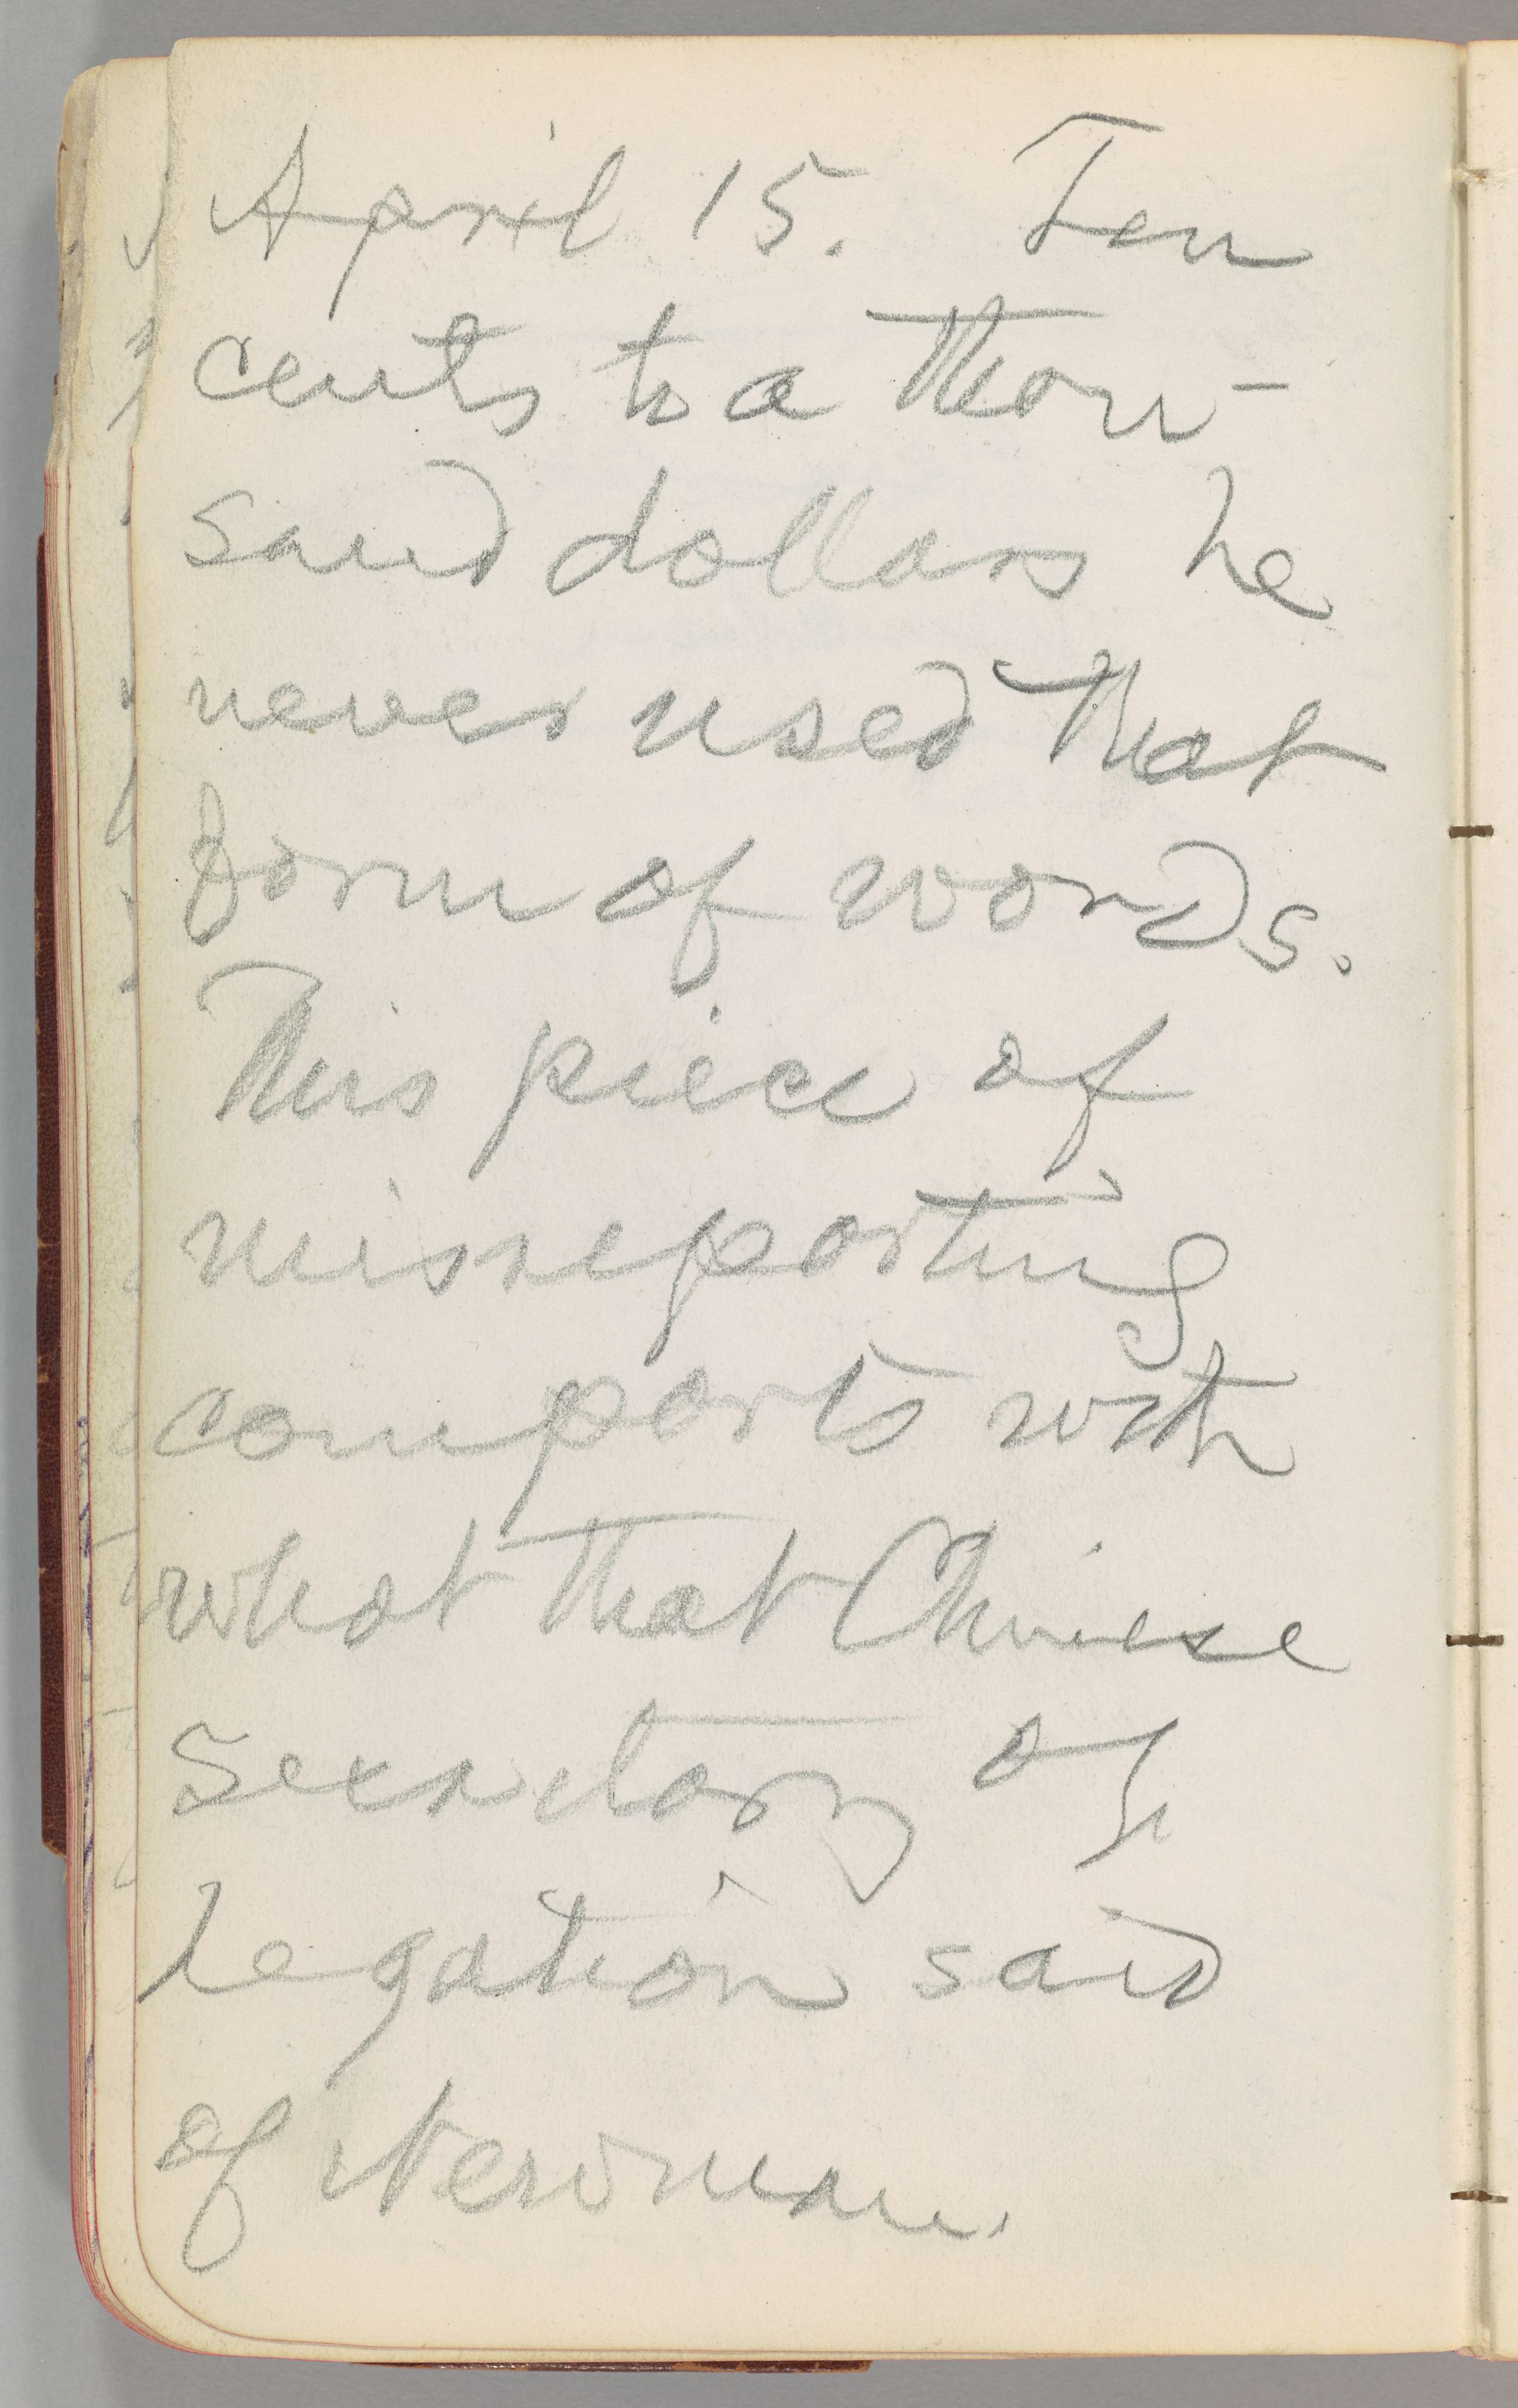 April 15. Ten
cents to a thou-
sand dollars he
never used that
form of words.
This piece of
misreporting
comports with
what that Chinese
Secretary of
legation said
of Newman.